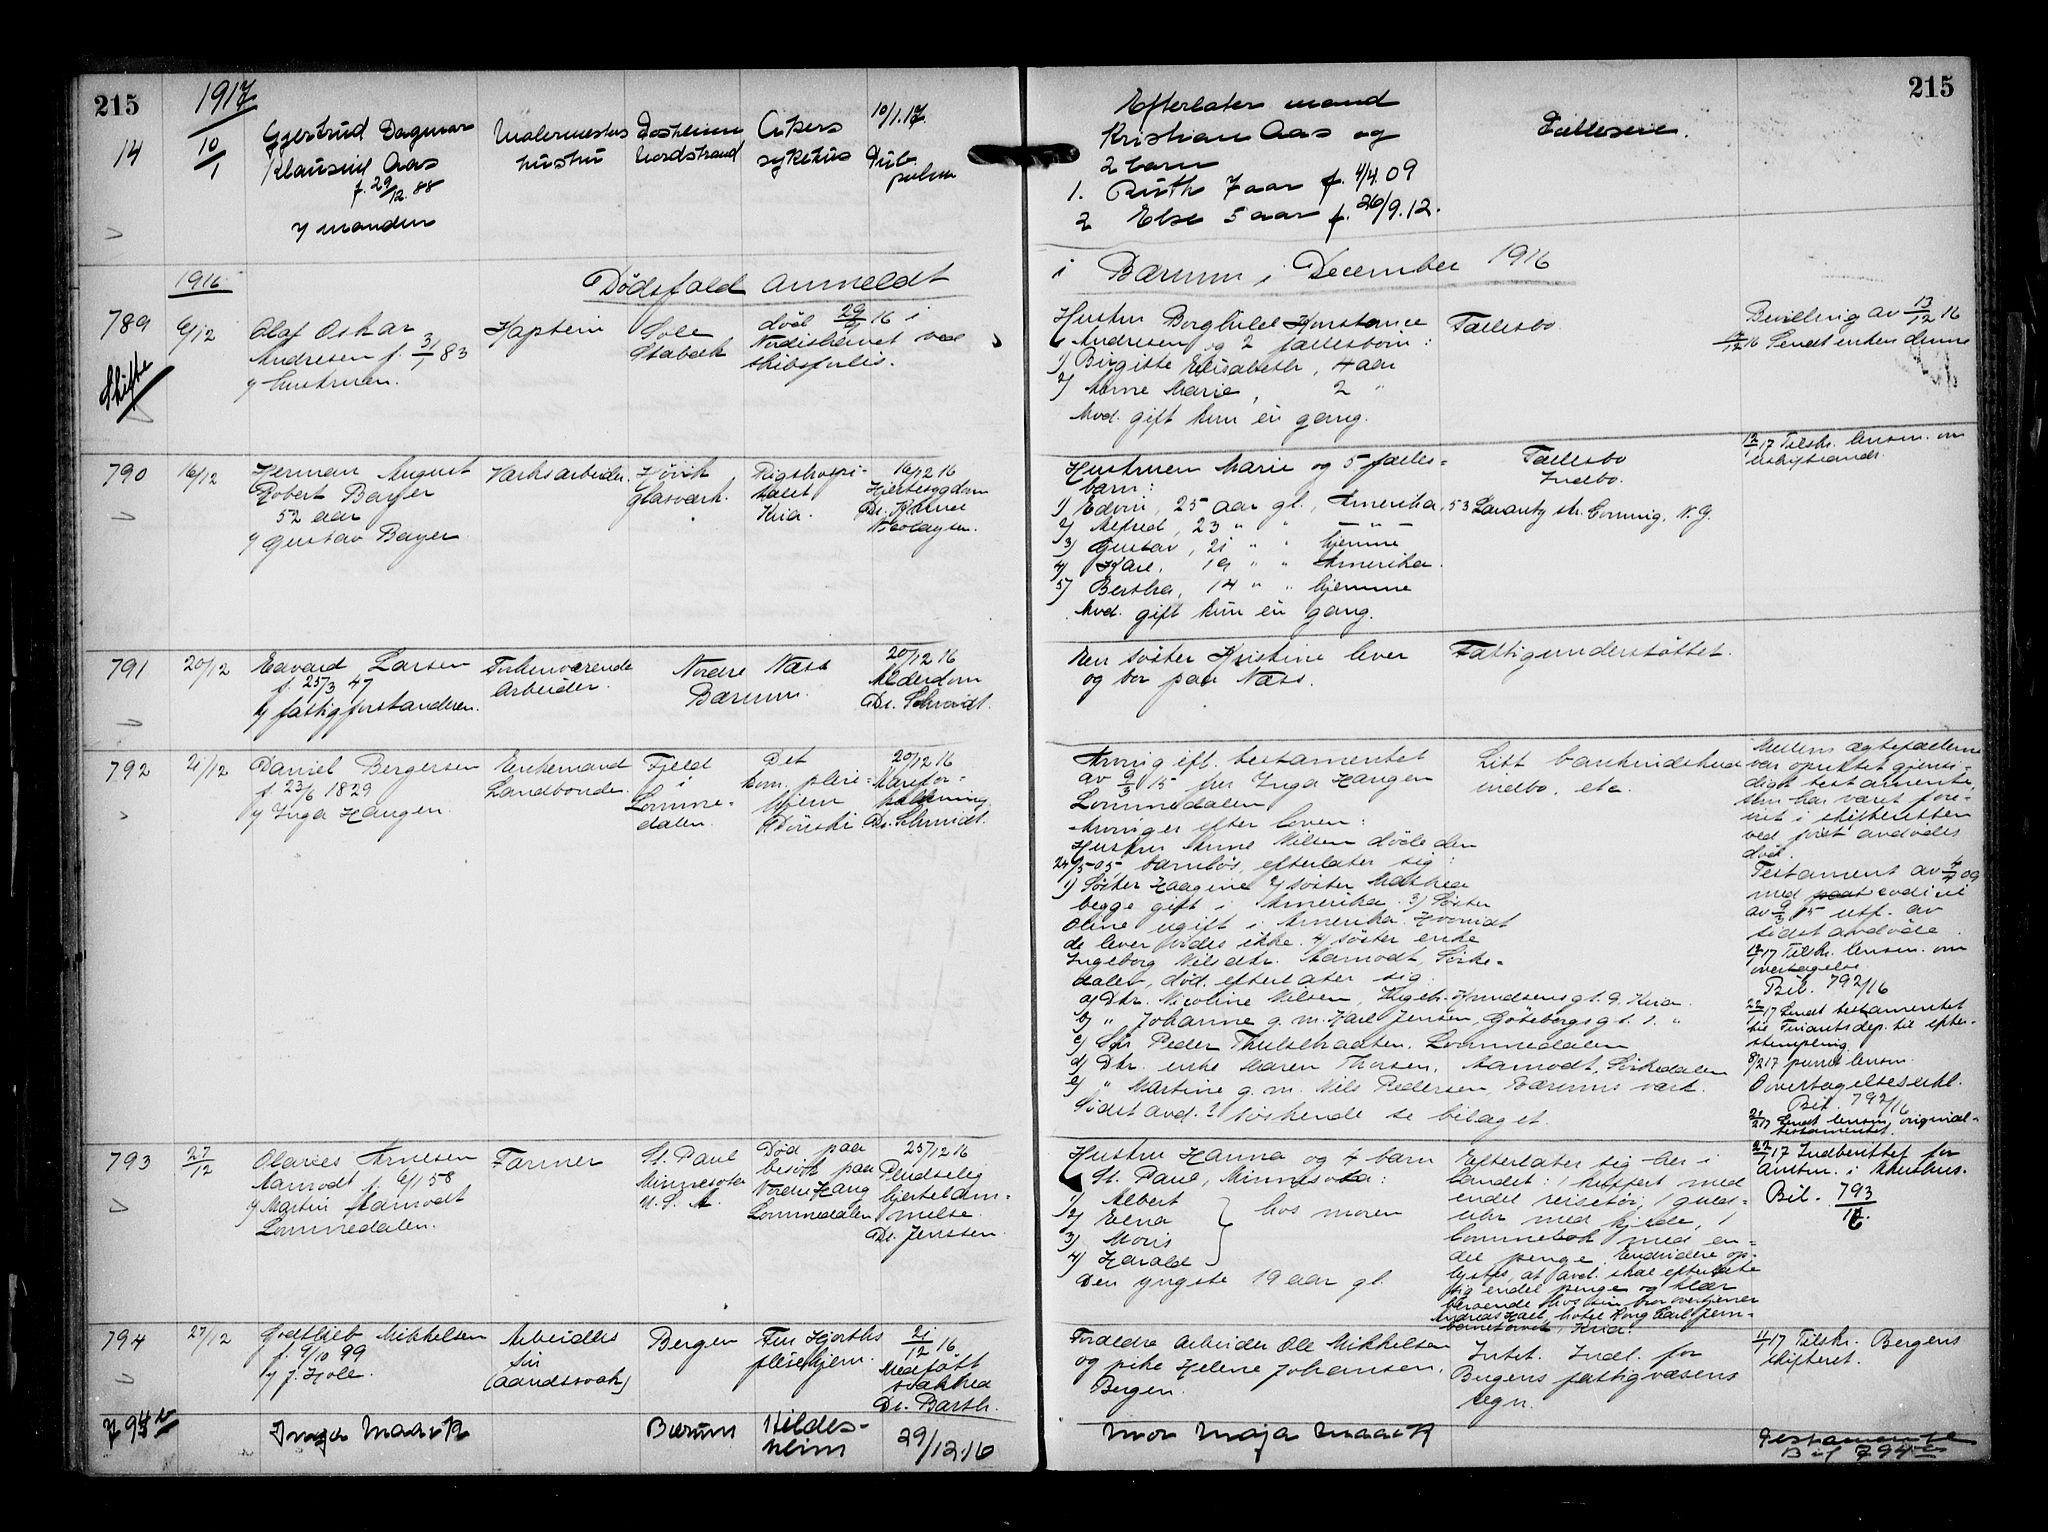 215
1917
14
10/1
Gjertrud Dagmar
Klausend Aas
f. 29/12.88
v/ manden
Malermesters
hustru
Nordstrand
Akers
sykehus
10/1.17
Tub.
pulm
Efterlater mand
Kristian Aas og
2 barn
1. Ruth 7 aar f. 4/4.09
2 Else 5 aar f. 26/9.12.
Fælleseie.
215
1916
Dødsfald anmeldt
i Bærum i December 1916
789
Skifte
6/12
Olaf Oskar
Andresen f. 3/1 83
v/ hustruen.
Kaptein
Sole
Stabæk
død 29/9 16 i
Nordishavet ved
skibsforlis.
Hustru Borghild Konstance
Andresen og 2 fællesbørn:
1) Birgitte Elisabeth, 4 aar
2) Anne Marie, 2 "
Avd. gift kun en gang.
Fællesbo
Bevilling av 13/12 16
14/12 16 Sendt enken denne
790
16/12
Herman August
Robert Bayer
52 aar
v/ Gustav Bayer
Verksarbeider
Høvik
glasværk.
Rigshospi-
talet
Kria.
16/12 16
Hjertesygdom
Nicolaysen
Hustruen Marie og 5 fælles-
barn:
1) Edvin, 25 aar gl., Amerika, 53 Lavanty str. Corning, N.Y.
2) Alfred, 23 " " — " —
3) Gustav, 21 " " hjemme
4) Karl, 19 " " Amerika.
5) Bertha, 14 " " hjemme
Avd. gift kun en gang.
Fællesbo
Indbo.
12/1 17 Tilskr. lensm. om
utskiftsandr.
791
20/12
Edvard Larsen
f. 25/3 47
v/ fattigforstanderen.
Forhenværende
Arbeider.
Nordre Næss
Bærum.
20/12 16
Alderdom
Dr. Schmidt.
En søster Kristine lever
og bor paa Næss.
Fattigunderstøttet.
792
21/12
Daniel Bergersen
f. 23/6 1829
v/ Inga Haugen
Enkemand
Landbonde
Fjeld
i
Lomme-
dalen.
Det
kom. pleie-
hjem
Dønski
20/12 16
Marefor-
kalkning
Dr. Schmidt.
Arving eft. testamentet
av 9/3 15 frk Inga Haugen
Lommedalen
Arvinger efter loven:
Hustru Anne Nilsen døde den
24/5-05, barnløs, efterlater sig:
1) Søster Haagine 2) søster Mathea
begge gift i Amerika. 3) Søster
Oline ugift i Amerika. Hvorvidt
de lever vides ikke. 4) søster enke
Ingeborg Nilsdtr. Aamodt, Sørke-
dalen, død, efterlater sig
a) Dtr. Nicoline Nilsen, Ingeb. Knudsens gt. 9. Kria.
b) " Johanne g. m. Karl Jensen, Göteborgsgt. 1. "
c) Søn Peder Thulselraaten, Lommedalen
d) Dtr. enke Maren Thorsen, Aamodt, Sørkedalen
e) " Martine g. m. Nils Pedersen, Bærums værk.
Sidst avd.s søskende se bilaget.
Litt bankindskud
indbo. etc.
Mellem ægtefællerne
var oprettet gjensi-
digt testamente,
som har været fore-
vist i skifteretten
ved først avdødes
død.
Testament av 4/4 09
med codicil
av 9/3 15 utf. av
sidst avdøde.
12/1 17 Tilskr. lensm. om
overtagelse
Bil. 792/16
22/1 17 Sendt testamentet
til Finantsdep. til efter-
stempling.
8/2 17 purret lensm.
Overtagelseserkl.
Bil. 792/16
21/2 17 Sendt lensm. original-
testamentet
793
27/12
Olaves Arnesen
Aamodt f. 6/1 58
v/ Martin Aamodt
Lommedalen.
Farmer
St. Paul
Minnesota
U. S. A.
Død paa
besøk paa
Nordre Haug
Lommedalen
25/12 16
Pludselig
hjertelam-
melse.
Dr. Jenssen.
Hustru Hanna og 4 barn
St. Paul, Minnesota:
1) Albert
2) Elna
3) Moris
4) Harald
hos moren
Den yngste 19 aar gl.
Efterlater sig her i
landet: 1 kuffert med
endel reisetøi, 1 guld-
uhr med kjede, 1
lommebok med en-
del penge. Endvidere op-
lystes, at avd. skal efterlate
sig endel penge og klær
beroende hos sin bror overtjener
Hotel Kong Carl Jern-
banetorvet, Kria.
22/1 17 Indberettet for
Amtm. i Akershus.
Bil. 793/16
794
27/12
Godtlieb Mikkelsen
f. 9/10 99
v/ J. Hole.
Arbeidsløs
Sin
(aandssvak)
Bergen
Fru Hjorths
pleiehjem.
21/12 16
Medfødt
svakhed
Dr. Barth.
Forældre Arbeider Ole Mikkelsen
og pike Helene Johansen,
Bergen.
Intet. Indl. for
Bergens fattigvæsens
regn.
4/1 17 Tilskr. Bergens
skifteret.
794b
Maack
Bærum
Hildes-
heim
29/12.16
mor Maja Maack
Testamente
Bil 794